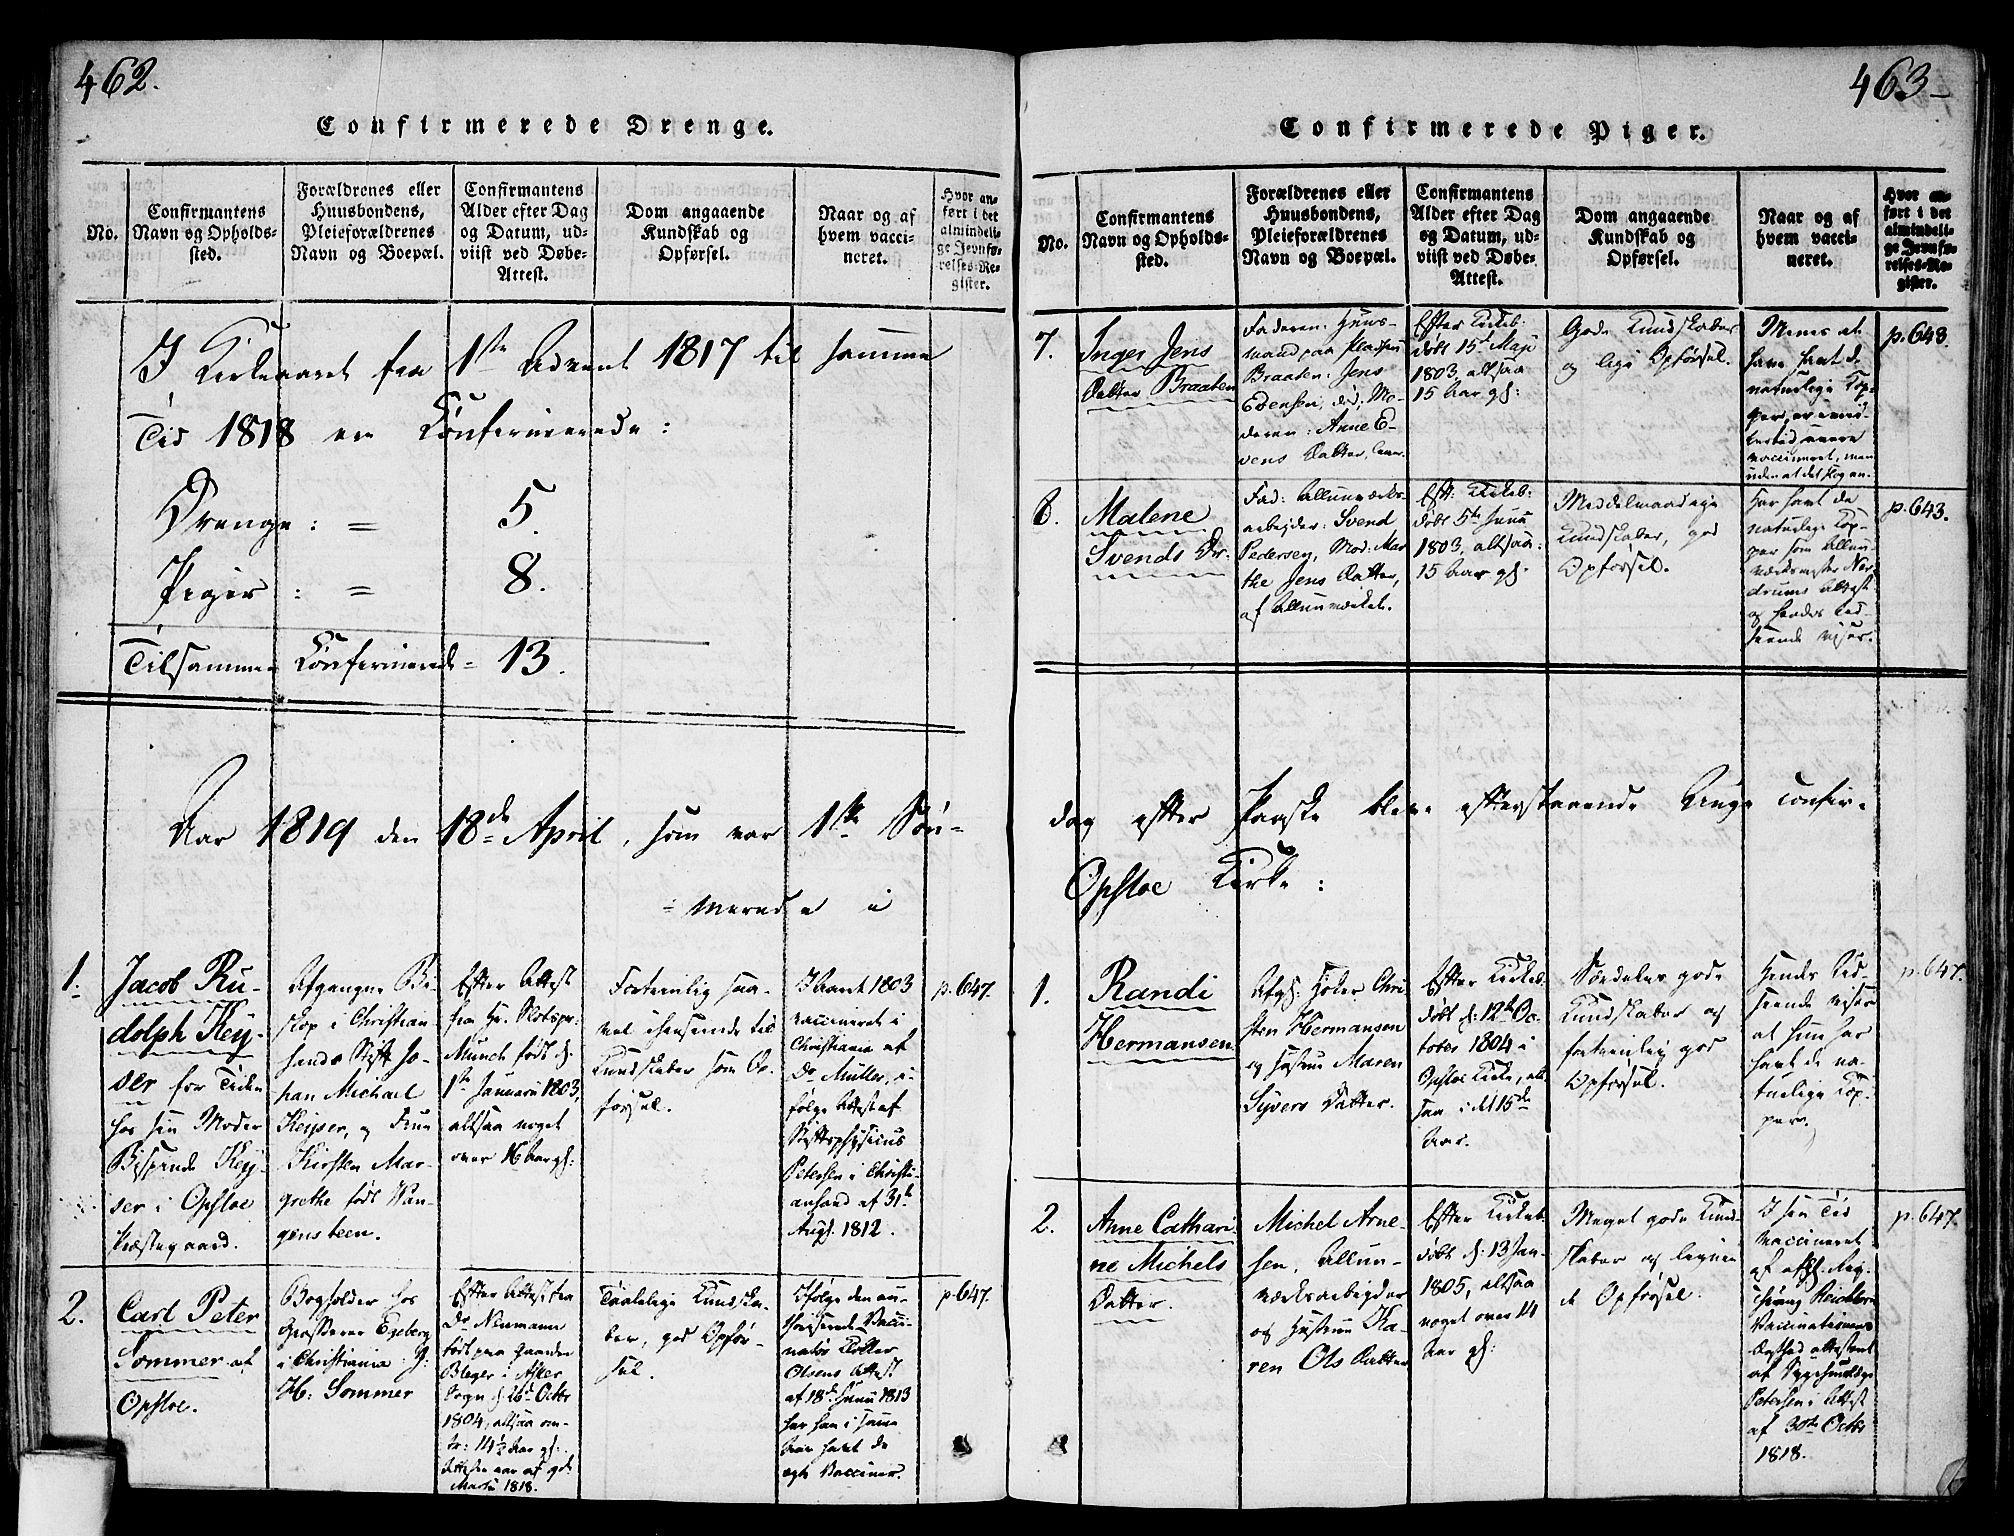 462.
Confirmerede Drenge.
No.
Confirmantens
Navn og Opholds-
sted.
Forældrenes eller
Huusbondens,
Pleieforældrenes
Navn og Boepæl.
Confirmantens
Alder efter Dag
og Datum, ud-
viist ved Døbe-
Attest.
Dom angaaende
Kundskab og
Opførsel.
Naar og af
hvem vacci-
neret.
Hvor an-
ført i det
almindeli-
ge Jevnfø-
relses-Re-
gister.
I Kirkeaaret fra 1ste Advent 1817 til samme
Tid 1818 ere Confirmerede:
Drenge: = 5.
Piger : = 8.
Tilsammen Confirmerede = 13.
Aar 1819 den 18de April, som var 1ste Søn-
= merede i
1.
Jacob Ru-
dolph Key-
ser for Tiden
hos sin Moder
Bispinde Key-
ser i Opsloe
Præstegaard.
Afgangne Bi-
skop i Christian-
sands Stift Jo-
han Michael
Keyser, og Frue
Kirsten Mar-
grethe født Wan-
gensteen.
Efter Attest
fra Hr. Slotspr.
Munch født d.
1ste Januarii 1803,
altsaa noget
over 16 Aar gl:
Fortrinlig saa-
vel i henseende til
Kundskaber som Op-
førsel.
I Aaret 1803
vaccineret i
Christiania af
Dr Müller, i-
følge Attest af
Stiftsphysicus
Petersen i Christi-
ansand af 31te
Augs. 1812.
p. 647.
2.
Carl Peter
Sommer af
Opsloe.
Bogholder hos
Grosserer Egeberg
i Christiania: J:
H: Sommer
Efter Attest fra
Dr Neumann
født paa Gaarden
Bleger i Asker
Sogn d. 26de Octbr
1804, altsaa om-
tr: 14½ Aar gl:
Martii 1818.
Taalelige Kundska-
ber, god Opfør-
sel.
Ifølge den au-
toriserede Vacci-
natør Klokker
Olsens Attest
af 18de Junii 1813
har han i samme
Aar havt de
ægte Vacciner.
p. 647.
463
Confirmerede Piger.
No.
Confirmantens
Navn og Opholds-
sted.
Forældrenes eller
Huusbondens,
Pleieforældrenes
Navn og Boepæl.
Confirmantens
Alder efter Dag
og Datum, ud-
viist ved Døbe-
Attest.
Dom angaaende
Kundskab og
Opførsel.
Naar og af
hvem vacci-
neret.
Hvor an-
ført i det
almindeli-
ge Jevnfø-
relses-Re-
gister.
7.
Inger Jens
Datter Braaten
Faderen: Huus-
mand paa Pladsen
Braaten: Jens
Evensen, død; Mo-
deren: Anne E-
vens Datter, lever.
Efter Kirkeb:
døbt 15de Maji
1803, altsaa
15 Aar gl:
Gode Kundskaber
og lige Opførsel.
Menes at
have havt de
naturlige Kop-
per, er imid-
lertid
vaccineret, men
uden at det slog an.
p. 643.
8.
Malene
Svends Dr.
Fad: Allunværks-
arbejder: Svend
Pedersen, Mod: Mar-
the Jens Datter,
af Allunværket.
Eft: Kirkeb:
døbt 5te Junii
1803, altsaa
15 Aar gl:
Middelmaadige
Kundskaber, god
Opførsel.
Har havt de
naturlige Kop-
per som Allun-
værks
drums Attest
og hendes Ud-
seende viser.
p. 643.
dag efter Paaske bleve efterstaaende Unge confir-
Opsloe Kirke:
1.
Randi
Hermansen
Afgl: Høker Chri-
sten Hermansen
og Hustrue Maren
Syvers Datter.
Efter Kirkeb.
døbt d. 12te Oc-
tober 1804 i
Opsloe Kirke, alt-
saa i det 15de
Aar.
Særdeles gode
Kundskaber og
fortrinlig god
Opførsel.
Hendes Ud-
seende viser
at hun har
havt de na-
turlige Kop-
per.
p. 647.
2.
Anne Cathari-
ne Michels
Datter.
Michel Arne-
sen, Allun-
værksarbejder
og Hustrue Ka-
ren Ols Datter
Efter Kirkeb.
døbt d. 13 Jan.
1805, altsaa
noget over 14
Aar gl:
Meget gode Kund-
skaber og lignen-
de Opførsel.
I sin Tid
vaccineret
af
Vaccinations
attesteret
Petersens Attest
af 30te Octbr
1818.
p. 647.